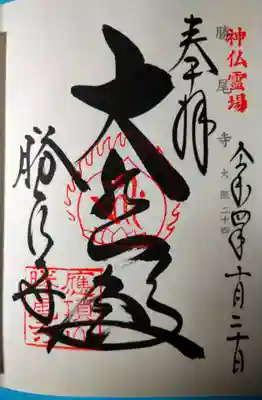 神仏霊場
勝尾寺 大阪二十四
令和四年十月二十日
奉拝
大悲殿
勝尾寺